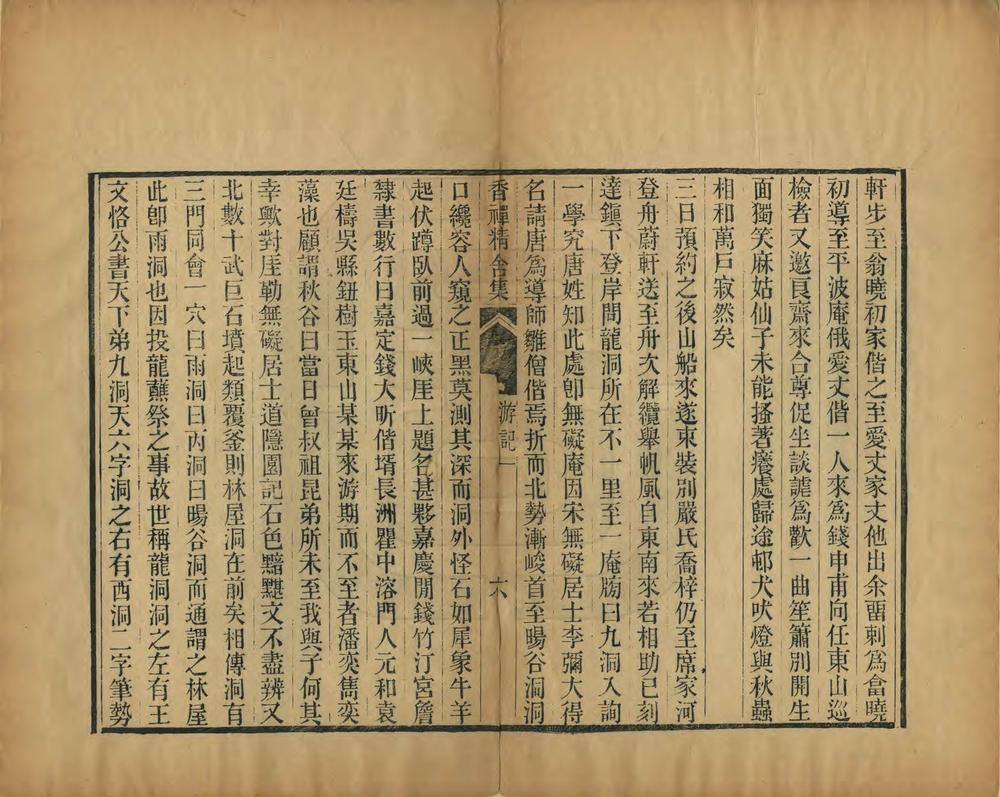 軒步至翁曉初家偕之至愛丈家丈他出余畱刺爲畣曉
初導至平波庵俄愛丈偕一人來爲錢申甫向任東山巡
檢者又邀艮齋來合尊促坐談謔爲歡一曲笙簫別開生
面獨笑麻姑仙子未能搔著癢處歸途邨犬吠燈與秋蟲
相和萬戶寂然矣
三日預約之後山船來遂束裝別嚴氏喬梓仍至席家河
登舟蔚軒送至舟次解纜舉帆風自東南來若相助已刻
達鎭下登岸問龍洞所在不一里至一庵牓曰九洞入詢
一學究唐姓知此處卽無礙庵因宋無礙居士李彌大得
名請唐爲導師雛僧偕焉折而北勢漸峻首至暘谷洞洞
香禪精舍集 游記一 六
口纔容人窺之正黑莫測其深而洞外怪石如犀象牛羊
起伏蹲臥前過一峽厓上題名甚夥嘉慶閒錢竹汀宮詹
隸書數行曰嘉定錢大昕偕壻長洲瞿中溶門人元和袁
廷檮吳縣鈕樹玉東山某某來游期而不至者潘奕雋奕
藻也顧謂秋谷曰當日曾叔祖昆弟所未至我與子何其
幸歟對厓勒無礙居士道隱園記石色黯黮文不盡辨又
北數十武巨石墳起類覆釜則林屋洞在前矣相傳洞有
三門同會一穴曰雨洞曰丙洞曰暘谷洞而通謂之林屋
此卽雨洞也因投龍蘸祭之事故世稱龍洞洞之左有王
文恪公書天下弟九洞天六字洞之右有西洞二字筆勢